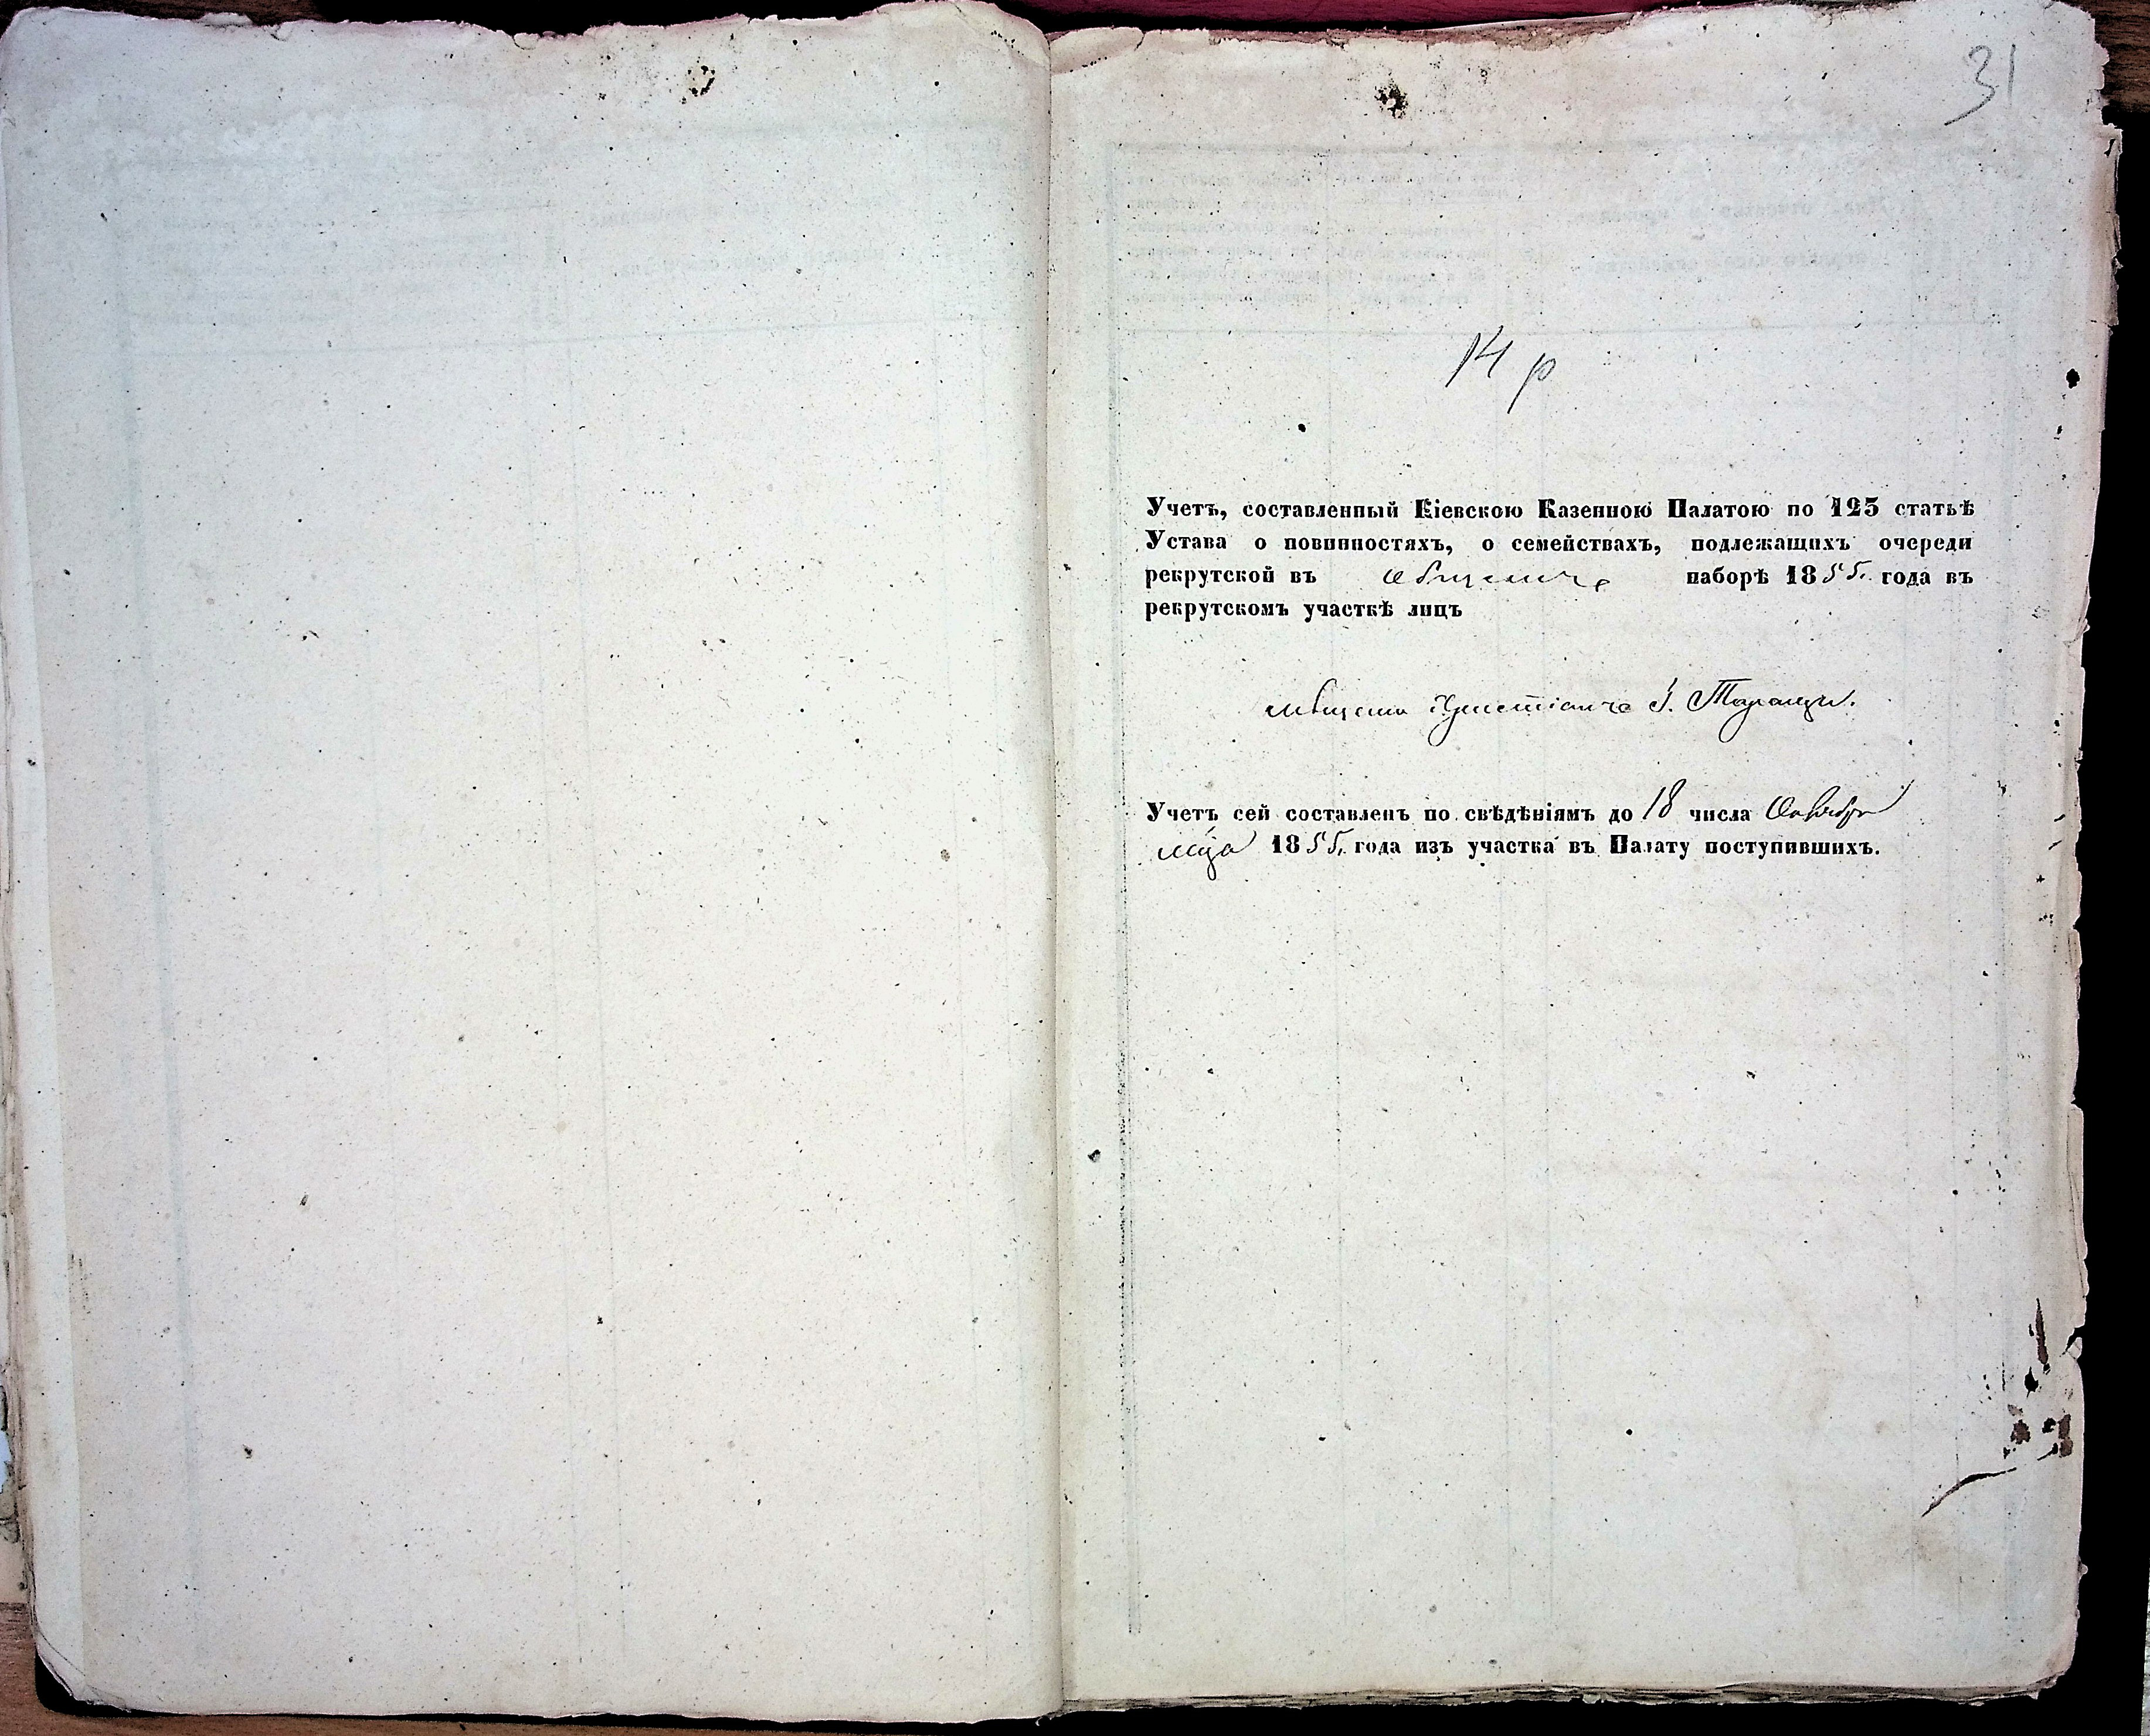 31
14 р
Учетъ, составленный Кіевскою Казенною Палатою по 125 статьѣ
Устава о повинностяхъ, о семействахъ, подлежащихъ очереди
рекрутской въ наборѣ 1855. года въ
рекрутскомъ участкѣ лицъ
мѣщанъ Христіанъ г. Таращи.
Учетъ сей составленъ по свѣдѣніямъ до 18 числа Октября
мца 1855. года изъ участка въ Палату поступившихъ.